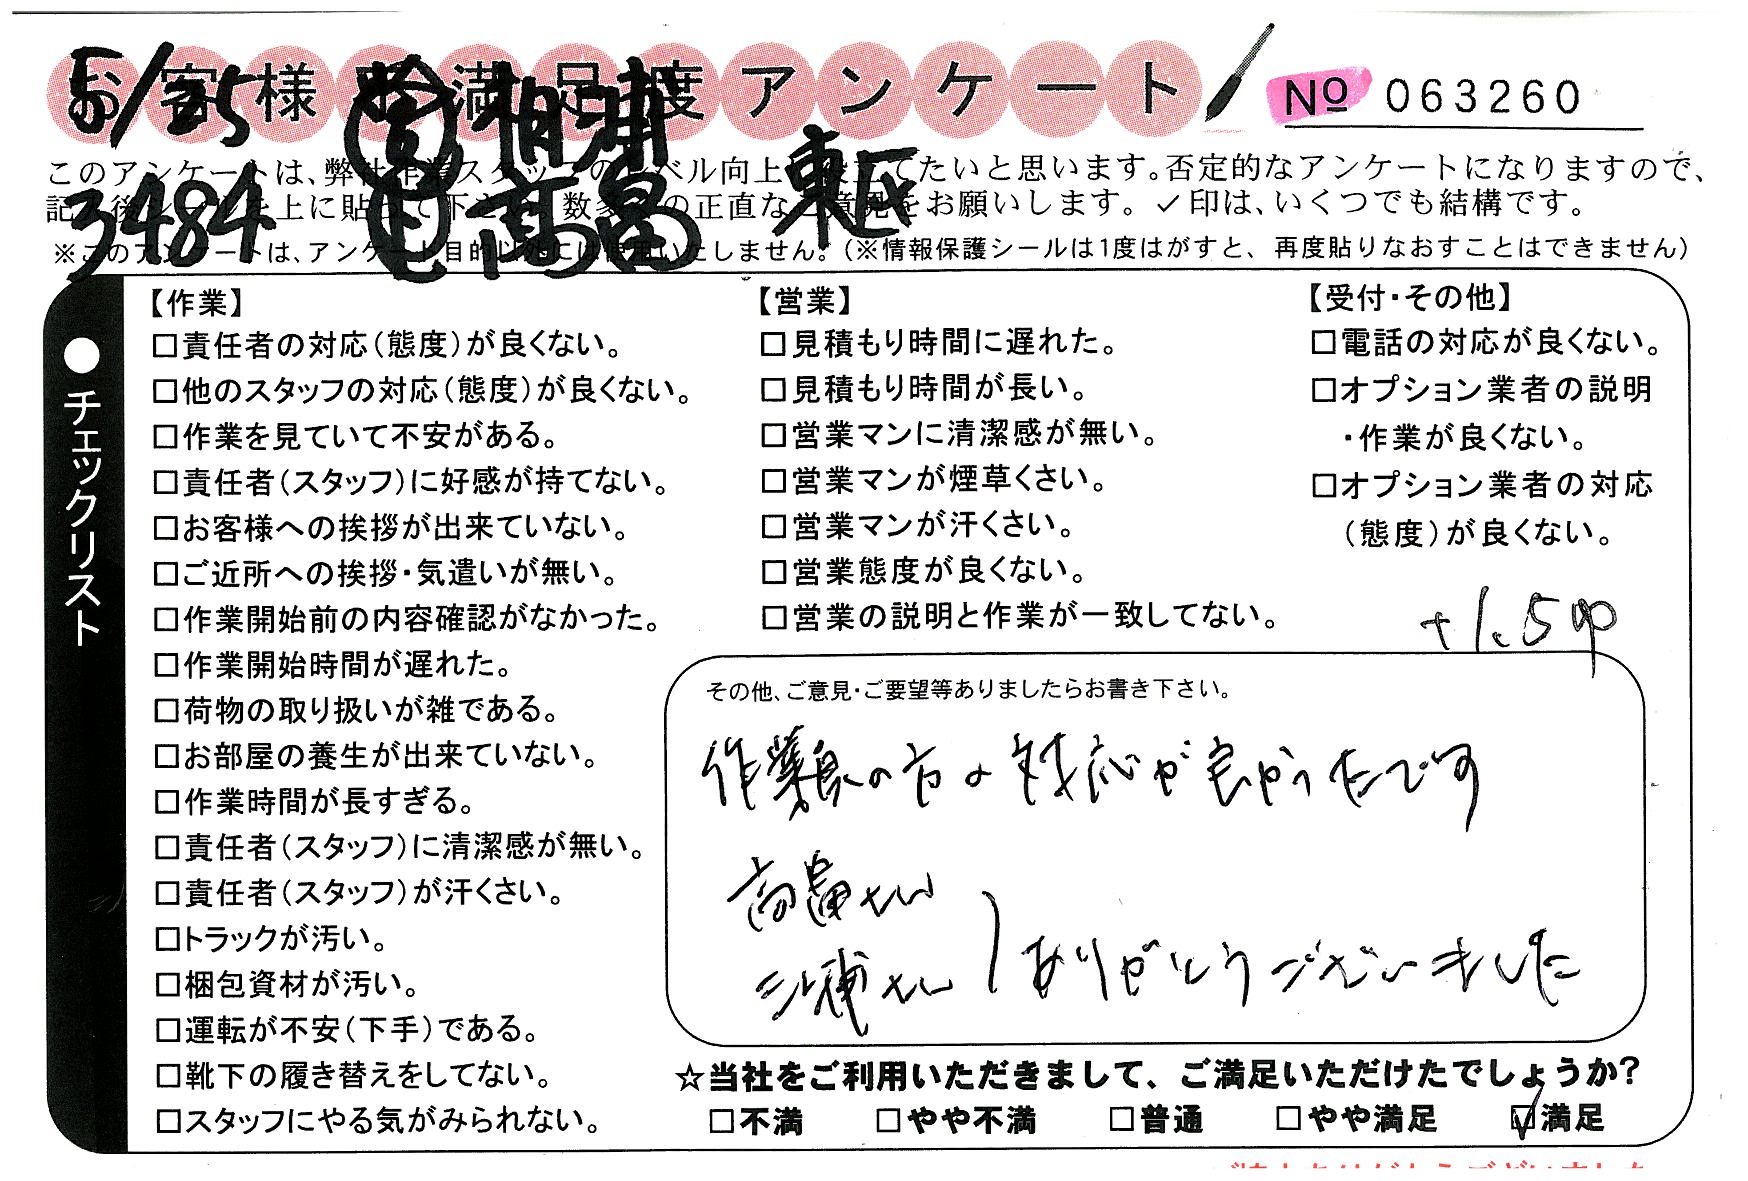 お客様の満足度アンケート
№ 063260
5/25
3484 高畠 東区
このアンケートは、弊社作業スタッフのレベル向上に役立てたいと思います。否定的なアンケートになりますので、
記入後シールを上に貼って下さい。数多くの正直なご意見をお願いします。✓印は、いくつでも結構です。
※このアンケートは、アンケート目的以外には使用いたしません。（※情報保護シールは1度はがすと、再度貼りなおすことはできません）
●チェックリスト
【作業】
□責任者の対応（態度）が良くない。
□他のスタッフの対応（態度）が良くない。
□作業を見ていて不安がある。
□責任者（スタッフ）に好感が持てない。
□お客様への挨拶が出来ていない。
□ご近所への挨拶・気遣いが無い。
□作業開始前の内容確認がなかった。
□作業開始時間が遅れた。
□荷物の取り扱いが雑である。
□お部屋の養生が出来ていない。
□作業時間が長すぎる。
□責任者（スタッフ）に清潔感が無い。
□責任者（スタッフ）が汗くさい。
□トラックが汚い。
□梱包資材が汚い。
□運転が不安（下手）である。
□靴下の履き替えをしてない。
□スタッフにやる気がみられない。
【営業】
□見積もり時間に遅れた。
□見積もり時間が長い。
□営業マンに清潔感が無い。
□営業マンが煙草くさい。
□営業マンが汗くさい。
□営業態度が良くない。
□営業の説明と作業が一致してない。
【受付・その他】
□電話の対応が良くない。
□オプション業者の説明
・作業が良くない。
□オプション業者の対応
（態度）が良くない。
+1.5p
その他、ご意見・ご要望等ありましたらお書き下さい。
作業員の方の対応が良かったです
高畠さん
三浦さん ）ありがとうございました
☆当社をご利用いただきまして、ご満足いただけたでしょうか?
□不満 □やや不満 □普通 □やや満足 ☑満足